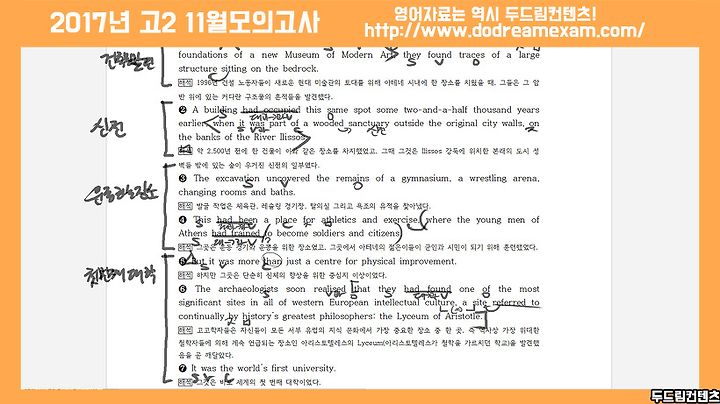 2017년 고2 11월모의고사
영어자료는 역시 두드림컨텐츠!
http://www.dodreamexam.com/
foundations of a new Museum of Modern Art, they found traces of a large
structure sitting on the bedrock.
해석 1996년 건설 노동자들이 새로운 현대 미술관의 토대를 위해 아테네 시내에 한 장소를 치웠을 때, 그들은 그 암
반 위에 있는 커다란 구조물의 흔적들을 발견했다.
신전
❷ A building had occupied this same spot some two-and-a-half thousand years
earlier, when it was part of a wooded sanctuary outside the original city walls, on
the banks of the River Ilissos.
해석 약 2,500년 전에 한 건물이 이와 같은 장소를 차지했었고, 그때 그것은 Ilissos 강둑에 위치한 본래의 도시 성
벽들 밖에 있는 숲이 우거진 신전의 일부였다.
❸ The excavation uncovered the remains of a gymnasium, a wrestling arena,
changing rooms and baths.
해석 발굴 작업은 체육관, 레슬링 경기장, 탈의실 그리고 욕조의 유적을 찾아냈다.
❹ This had been a place for athletics and exercise, where the young men of
Athens had trained to become soldiers and citizens.
해석 그곳은 운동 경기와 운동을 위한 장소였고, 그곳에서 아테네의 젊은이들이 군인과 시민이 되기 위해 훈련했었다.
첫번째 대학
❺ But it was more than just a centre for physical improvement.
해석 하지만 그곳은 단순히 신체의 향상을 위한 중심지 이상이었다.
❻ The archaeologists soon realised that they had found one of the most
significant sites in all of western European intellectual culture, a site referred to
continually by history's greatest philosophers: the Lyceum of Aristotle.
해석 고고학자들은 자신들이 모든 서부 유럽의 지식 문화에서 가장 중요한 장소 중 한 곳, 즉 역사상 가장 위대한
철학자들에 의해 계속 언급되는 장소인 아리스토텔레스의 Lyceum(아리스토텔레스가 철학을 가르치던 학교)을 발견했
음을 곧 깨달았다.
❼ It was the world's first university.
해석 그것은 바로 세계의 첫 번째 대학이었다.
두드림컨텐츠